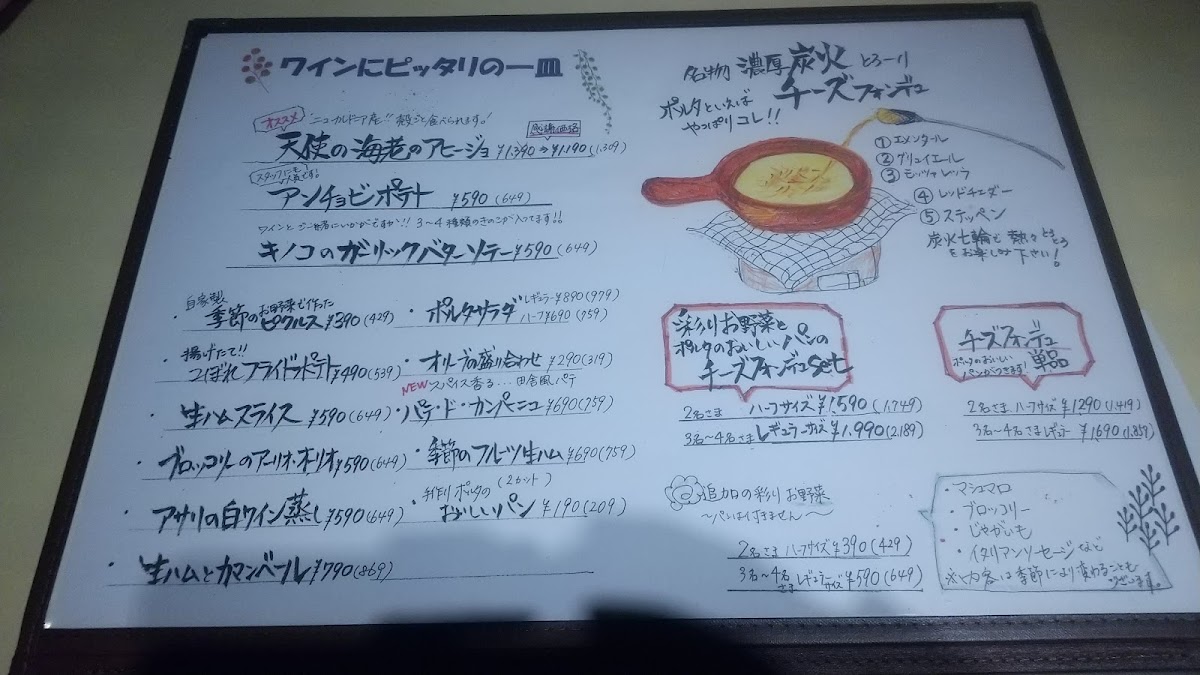 ワインにピッタリの一皿
オススメ
ニューカルドニア産!! 殻ごと食べられます。!
感謝価格
天使の海老のアヒージョ ¥1,390→¥1,190(1,309)
アンチョビポテト ¥590(649)
3〜4種類のきのこが入ってます!!
キノコのガーリックバターソテー ¥590(649)
自家製
季節のお野菜で作った
ピクルス ¥390(429)
揚げたて!!
こぼれフライドポテト ¥490(539)
・生ハムスライス ¥590(649)
・ブロッコリーのアーリオ・オーリオ ¥590(649)
・アサリの白ワイン蒸し ¥590(649)
・生ハムとカマンベール ¥790(869)
・ポルタサラダ レギュラー ¥890(979)
ハーフ ¥690(759)
・オリーブの盛り合わせ ¥290(319)
NEW スパイス香る…田舎風パテ
・パテ・ド・カンパーニュ ¥690(759)
・季節のフルーツ生ハム ¥690(759)
・手作りポルタの (2カット)
おいしいパン ¥190(209)
名物 濃厚炭火 とろーり
チーズフォンデュ
ポルタといえば
やっぱりコレ!!
①エメンタール
②グリュイエール
③モッツァレッラ
④レッドチェダー
⑤ステッペン
炭火七輪で熱々とろとろ
をお楽しみ下さい!
彩りお野菜と
ポルタのおいしいパンの
チーズフォンデュset
2名さま ハーフサイズ ¥1,590(1,749)
3名〜4名さま レギュラーサイズ ¥1,990(2,189)
チーズフォンデュ
単品
ポルタのおいしい
パンがつきます!
2名さま ハーフサイズ ¥1290(1,419)
3名〜4名さま レギュラー ¥1690(1,859)
追加の彩りお野菜
〜パンは付きません〜
2名さま ハーフサイズ ¥390(429)
3名〜4名さま レギュラーサイズ ¥590(649)
・マシュマロ
・ブロッコリー
・じゃがいも
・イタリアンソーセージなど
※内容は季節により変わることも
ございます。